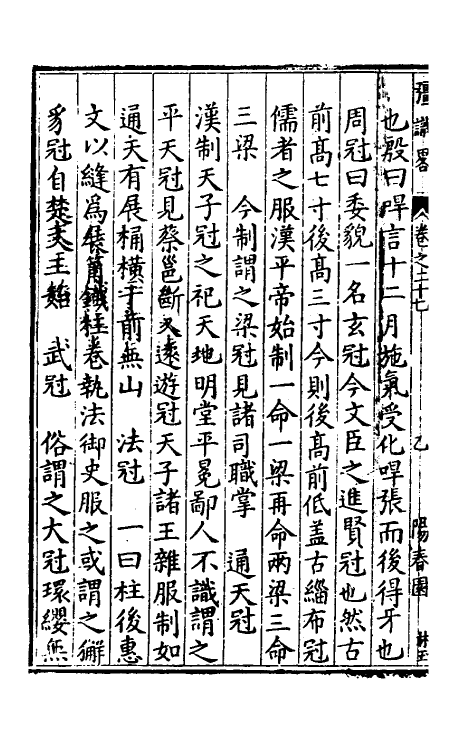 稽讌畧 卷之二十七 乙 陽春園
也殷曰哻言十二月施氣受化哻張而後得牙也
周冠曰委貌一名玄冠今文臣之進賢冠也然古
前髙七寸後髙三寸今則後髙前低盖古緇布冠
儒者之服漢平帝始制一命一梁再命兩梁三命
三梁 今制謂之梁冠見諸司職掌 通天冠
漢制天子冠之祀天地明堂平冕鄙人不識謂之
平天冠見蔡邕斷 遠遊冠天子諸王雜服制如
通天有展桶橫于前無山 法冠 一曰柱後惠
文以縫爲展筩鐵柱卷執法御史服之或謂之獬
豸冠自楚文王始 武冠 俗謂之大冠環纓無